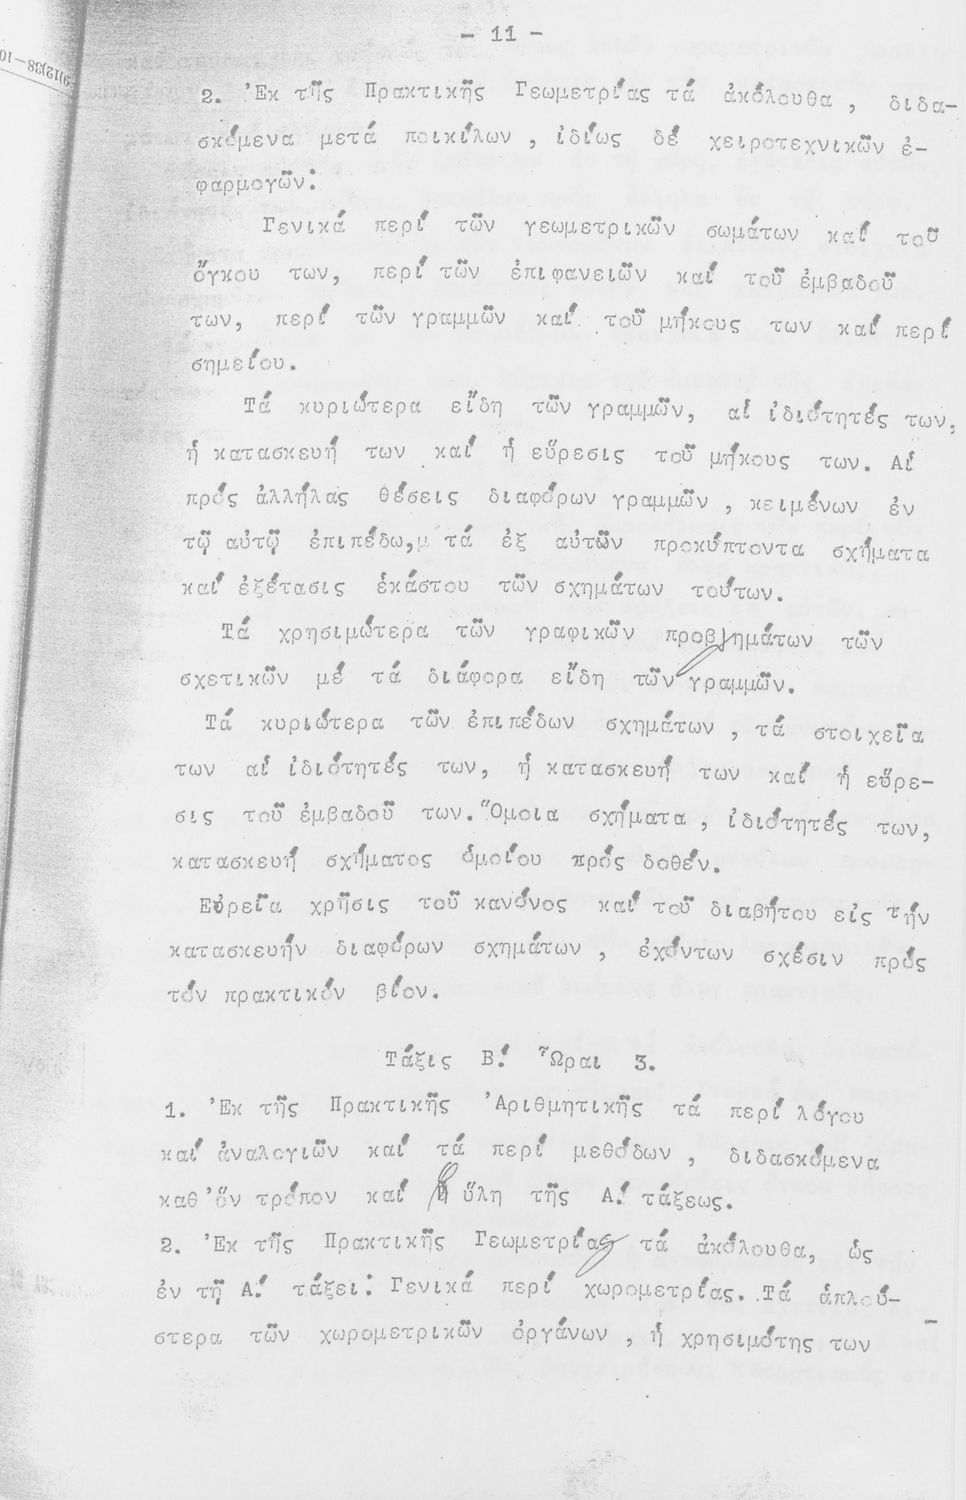 - 11 -
9)12)38-10
2. Ἐκ τῆς Πρακτικῆς Γεωμετρίας τά ἀκόλουθα, διδα-
σκόμενα μετά ποικίλων, ἰδίως δέ χειροτεχνικῶν ἐ-
φαρμογῶν:
Γενικά περί τῶν γεωμετρικῶν σωμάτων καί τοῦ
ὄγκου των, περί τῶν ἐπιφανειῶν καί τοῦ ἐμβαδοῦ
των, περί τῶν γραμμῶν καί τοῦ μήκους των καί περί
σημείου.
Τά κυριώτερα εἴδη τῶν γραμμῶν, αἱ ἰδιότητές των,
ἡ κατασκευή των καί ἡ εὕρεσις τοῦ μήκους των. Αἱ
πρός ἀλλήλας θέσεις διαφόρων γραμμῶν, κειμένων ἐν
τῷ αὐτῷ ἐπιπέδω, τά ἐξ αὐτῶν προκύπτοντα σχήματα
καί ἐξέτασις ἑκάστου τῶν σχημάτων τούτων.
Τά χρησιμώτερα τῶν γραφικῶν προβλημάτων τῶν
σχετικῶν μέ τά διάφορα εἴδη τῶν γραμμῶν.
Τά κυριώτερα τῶν ἐπιπέδων σχημάτων, τά στοιχεῖα
των αἱ ἰδιότητές των, ἡ κατασκευή των καί ἡ εὕρε-
σις τοῦ ἐμβαδοῦ των. Ὅμοια σχήματα, ἰδιότητές των,
κατασκευή σχήματος ὁμοίου πρός δοθέν.
Εὐρεῖα χρῆσις τοῦ κανόνος καί τοῦ διαβήτου εἰς τήν
κατασκευήν διαφόρων σχημάτων, ἐχόντων σχέσιν πρός
τόν πρακτικόν βίον.
Τάξις Β! Ὧραι 3.
1. Ἐκ τῆς Πρακτικῆς Ἀριθμητικῆς τά περί λόγου
καί ἀναλογιῶν καί τά περί μεθόδων, διδασκόμενα
καθ᾽ὅν τρόπον καί ἡ ὕλη τῆς Α! τάξεως.
2. Ἐκ τῆς Πρακτικῆς Γεωμετρίας τά ἀκόλουθα, ὡς
ἐν τῇ Α! τάξει: Γενικά περί χωρομετρίας. Τά ἁπλού-
στερα τῶν χωρομετρικῶν ὀργάνων, ἡ χρησιμότης των